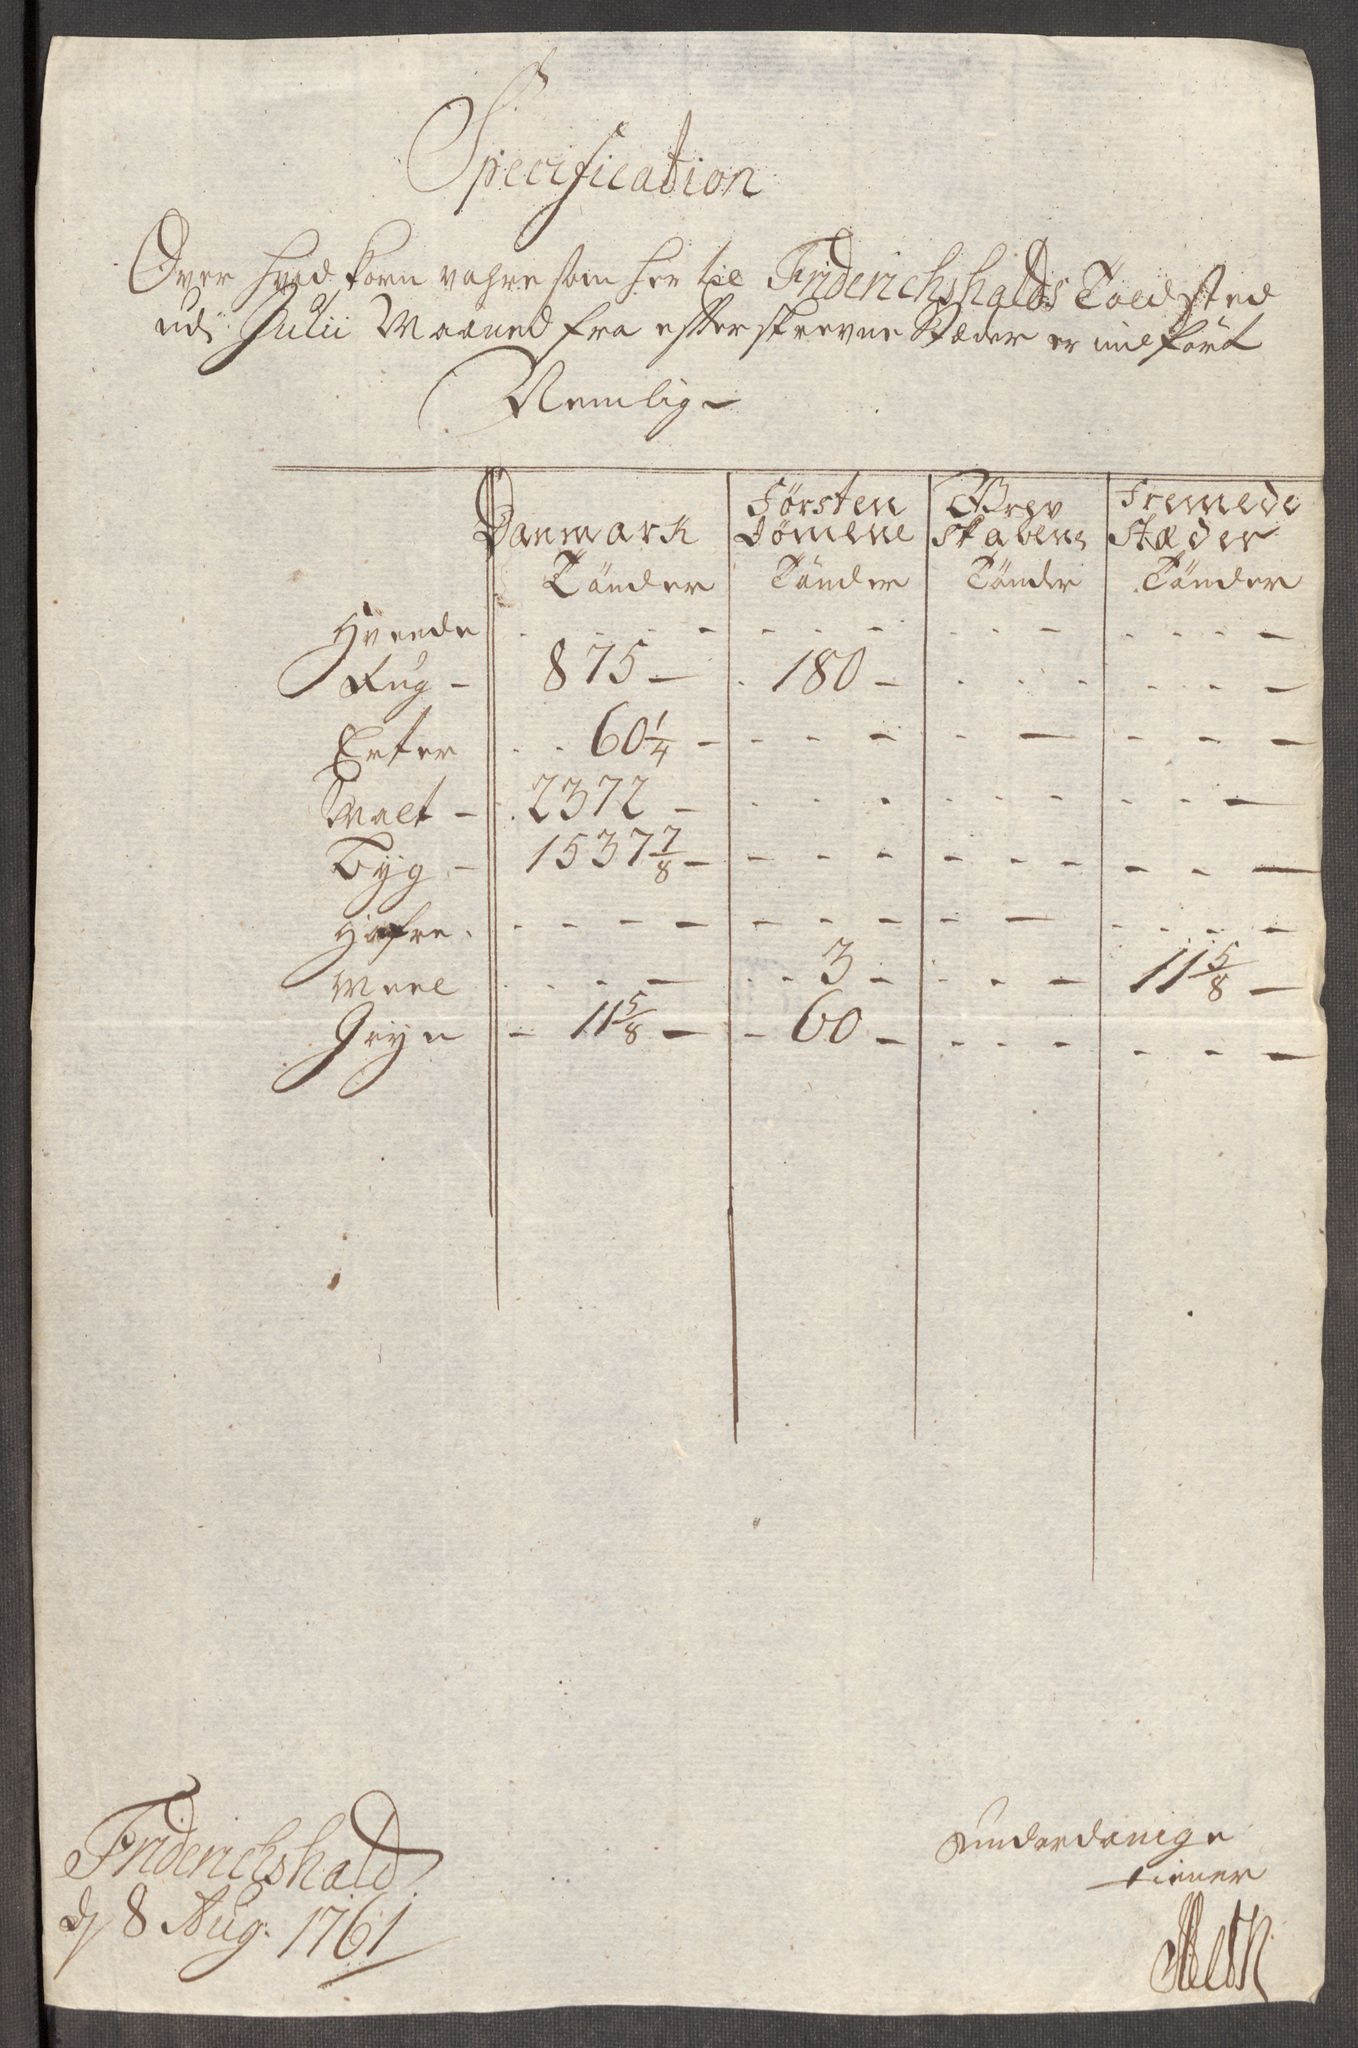 Specification
Over hvad korn vahre som her til Friderichshalds Told sted
udj Julii Maaned fra efterskrevne Stæder er indført
Nemlig –
Danmark Førsten Grev Fremede
dømene skabene Stæder
Tönder Tönder Tönder Tönder
Hveede - - - - - - - - - - - - - -
Rug – 875 – 180 – - - - - - -
Erter 60 1/4 – - - - - - - - -
Malt – 2372 – - - - - - - - - -
Byg – 1537 7/8 – - - - - - - - - -
Hafre - - - - - - - - - - - -
Meel - - - - 3 – - - - 11 5/8 –
Gryn – 11 5/8 – 60 – - - - - - -
Friderichshald
d 8 Aug: 1761
underdanige
tiener